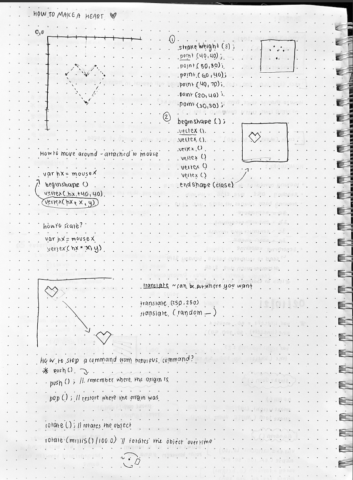 HOW TO MAKE A HEART
0,0
①
strokeWeight (5);
point (40,40);
point (50,50);
point (60,40);
point (40,70);
point (20,40);
point (30,30);
②
beginshape ();
vertex ().
vertex ().
vertex ().
vertex ()
vertex ()
vertex ()
endshape (close)
how to move around - attached to mouse
var hx = mouseX
beginshape ()
vertex (hx+40,40)
vertex (hx + x, y)
how to scale?
var hx = mouseX
vertex (hx * x, y)
translate - can be put where you want
translate (150,150)
translate (random _)
how to stop a command from previous command?
* push ()
push (); // remember where the origin is
pop (); // restore where the origin was
rotate (); // rotates the object
rotate (millis() / 1000) // rotates the object overtime